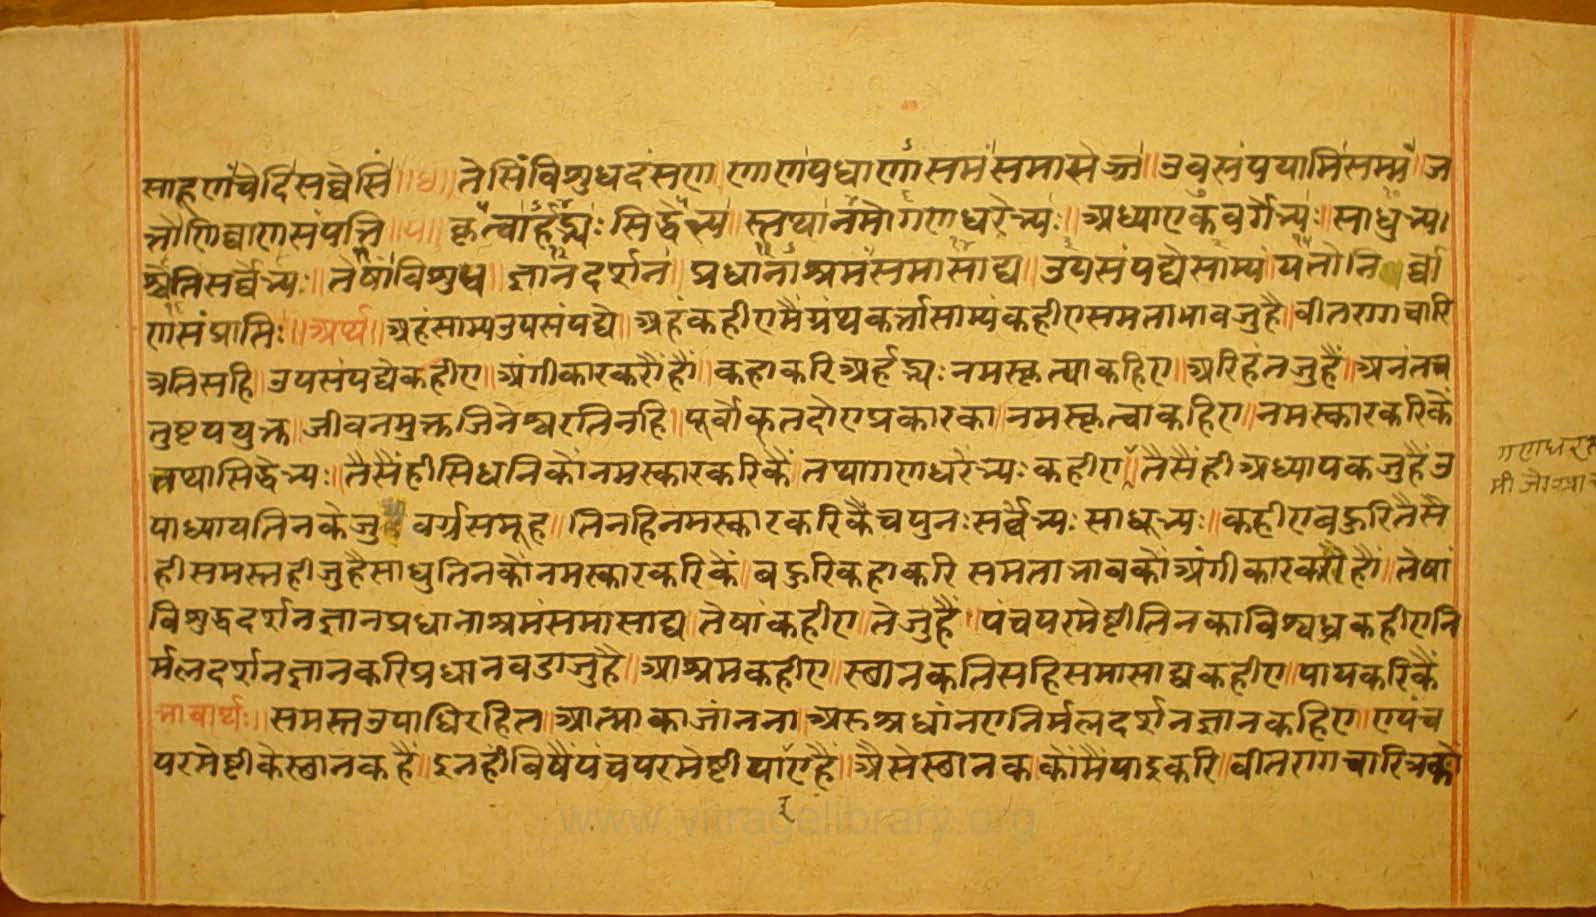 साहूणंचेदिसव्वेसिं ॥४॥ तेसिंविशुधदंसण । णाणपधाणासमंसमासेज्ज ॥ उवसंपयामिसम्मं ॥ ज
त्तोणिव्वाणसंपत्ति ॥५॥ कृत्वार्हद्भ्यः सिद्धेभ्य ॥ स्तथानमोगणधरेभ्यः ॥ अध्यापकवर्गेभ्यः ॥ साधुभ्य।
श्चेतिसर्व्वेभ्यः ॥ तेषांविशुध्ध ॥ ज्ञानदर्शन ॥ प्रधानाश्रमंसमासाद्य ॥ उपसंपद्येसाम्यं ॥ यतोनिर्व्वा
णसंप्राप्तिः ॥ अर्थ ॥ अहंसाम्यउपसंपद्ये ॥ अहंकहीएमैंग्रंथकर्त्तासाम्यंकहीएसमताभावजुहै ॥ वीतरागचारि
त्रतिसहि ॥ उपसंपद्येकहीए ॥ अंगीकारकरौंहौं ॥ कहाकरिअर्हद्भ्यः नमस्कृत्याकहिए ॥ अरिहंतजुहैं ॥ अनंतच
तुष्टययुक्त ॥ जीवनमुक्तजिनेश्वरतिनहि ॥ पूर्वोकृतदोएप्रकारका ॥ नमस्कृत्वाकहिए ॥ नमस्कारकरिकैं
तथासिद्धेभ्यः ॥ तैसैंहीसिधनिकौंनमस्कारकरिकैं ॥ तथागणधरेभ्यः कहीए ॥ तैसैंहीअध्यापकजुहैंउ
पाध्यायतिनकेजु वर्गसमूह ॥ तिनहिनमस्कारकरिकैंचपुनः सर्व्वेभ्यः साधुभ्यः ॥ कहीएबहुरितैसै
हीसमस्तहीजुहैसाधुतिनकौंनमस्कारकरिकें ॥ बहुरिकहाकरि समताभावकौंअंगीकारकरौंहौं ॥ तेषां
विशुद्धदर्शनज्ञानप्रधानाश्रमंसमासाद्य ॥ तेषांकहीए ॥ तेजुहैं ॥ पंचपरमेष्टीतिनकाविश्वध्रकहीएनि
र्मलदर्शनज्ञानकरिप्रधानवडाजुहै ॥ आश्रमकहीए ॥ स्थानकतिसहिसमासाद्यकहीए ॥ पायकरिकैं
भावार्थः ॥ समस्तउपाधिरहित ॥ आत्माकाजांनना ॥ अरुश्रधांनएनिर्मलदर्शनज्ञानकहिए ॥ एपंच
परमेष्टीकेस्थानकहैं ॥ इनहीविषैंपंचपरमेष्टीपाएहैं ॥ ऐसेस्थानककौंमैंपाइकरि ॥ वीतरागचारित्रकौ
३
www.vitragelibrary.org